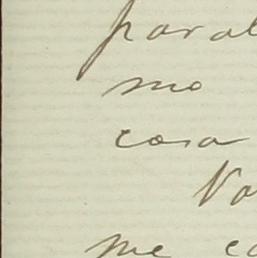 paral
mo
cosa
Vo
me co